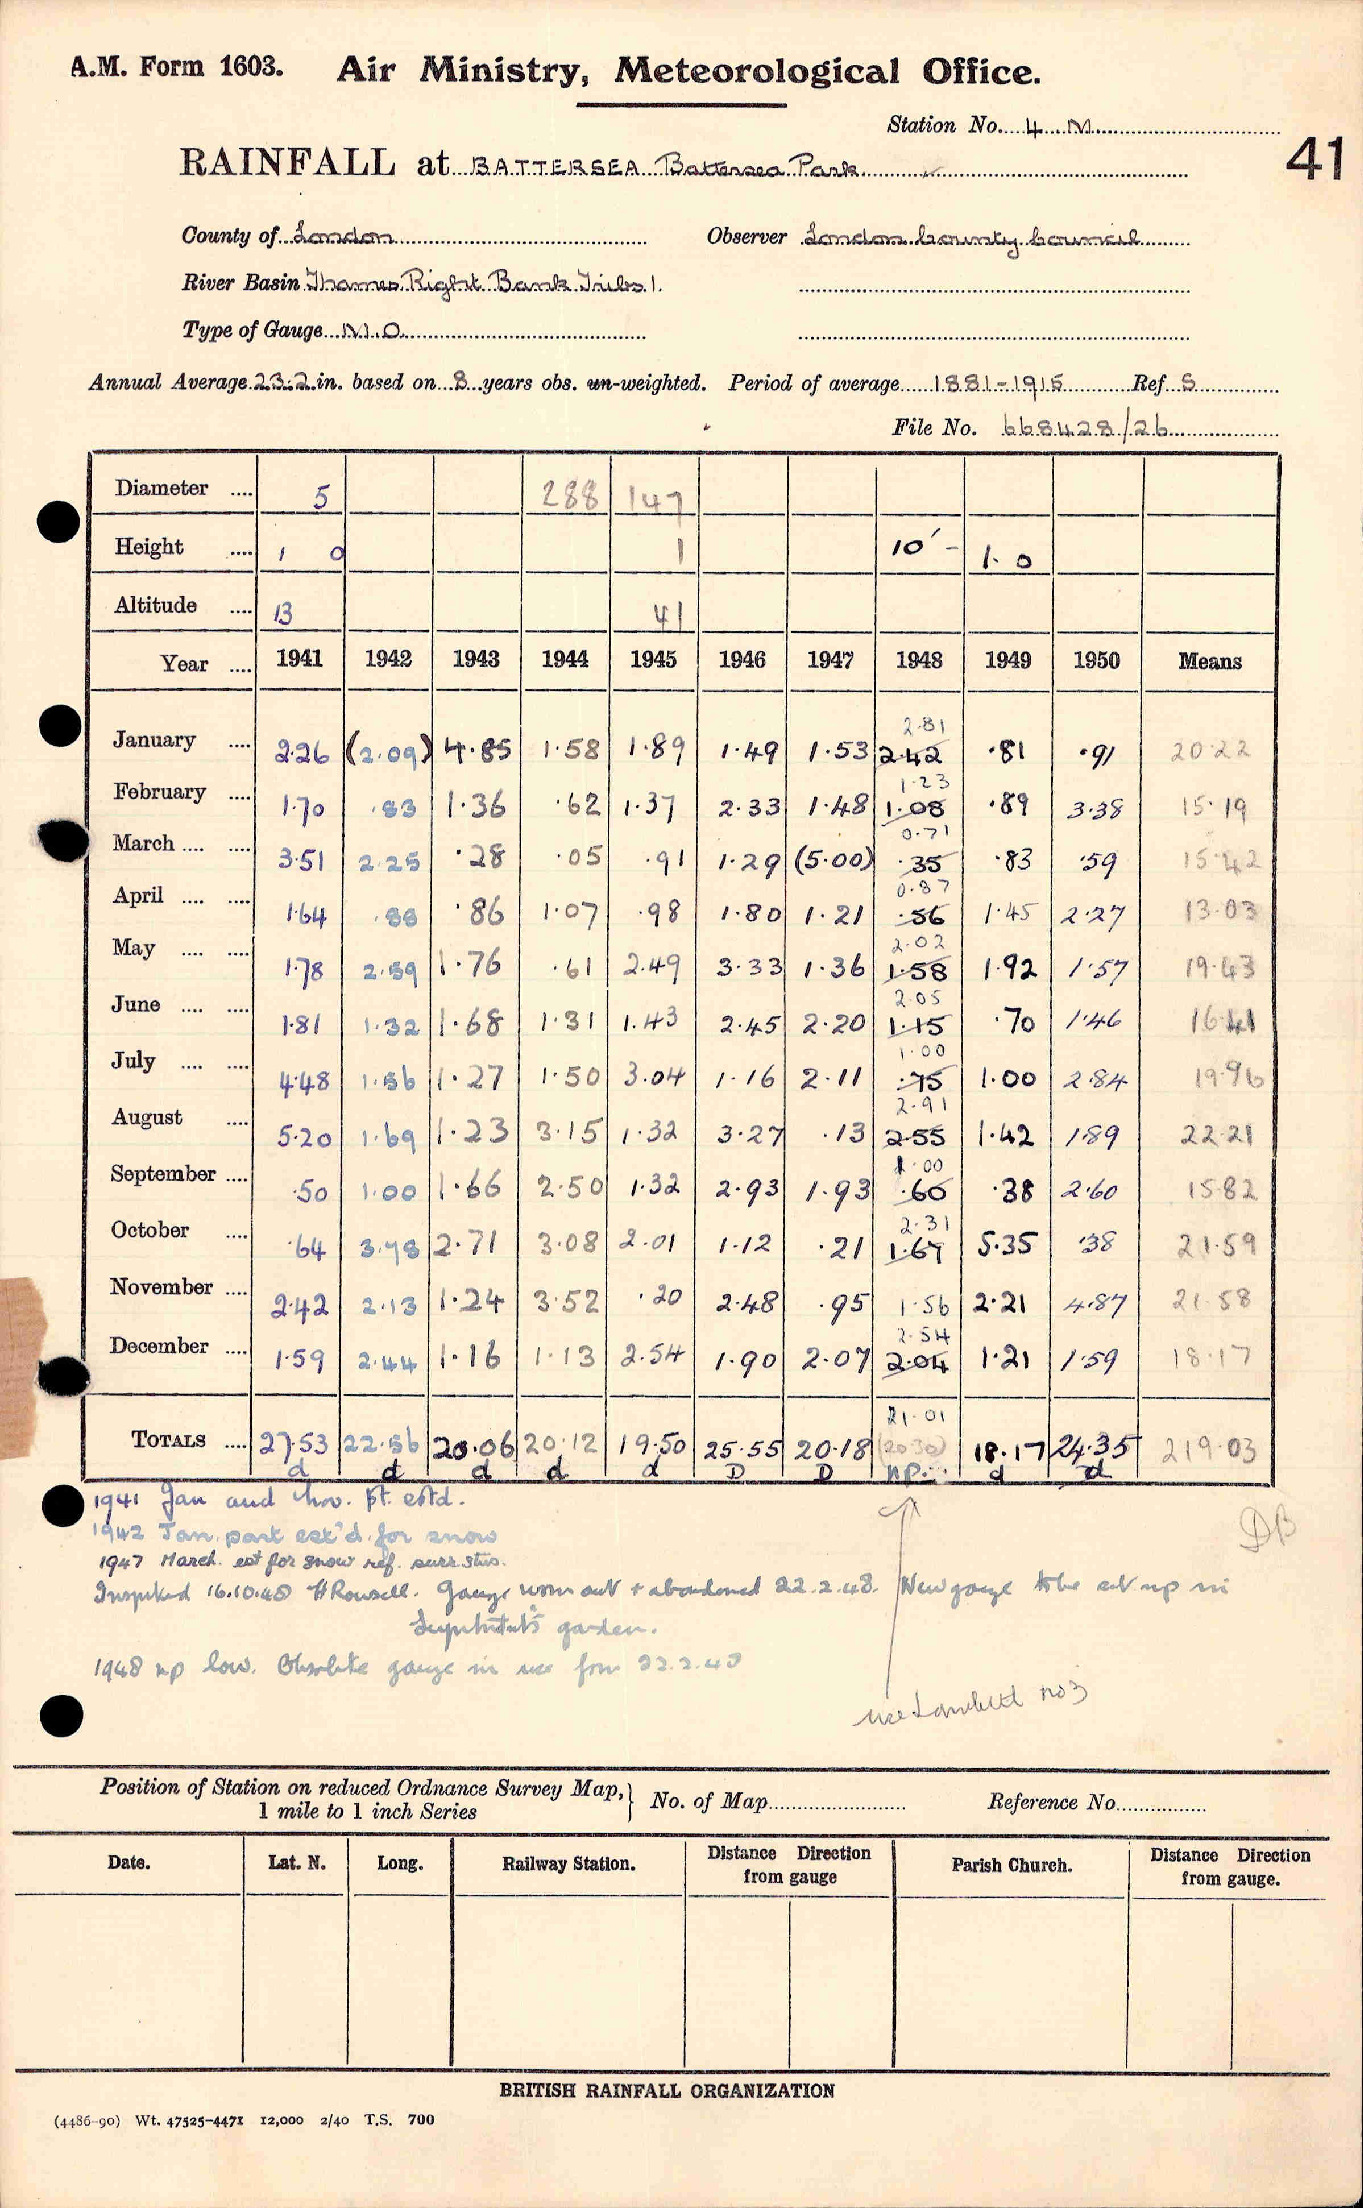 A.M. Form 1603. Air Ministry, Meteorological Office.
Station No. 4 M
41
RAINFALL at BATTERSEA Battersea Park
County of London Observer London County Council
River Basin Thames Right Bank Tribs 1.
Type of Gauge M.O.
Annual Average 23.2 in. based on 8 years obs. un-weighted. Period of average 1881-1915 Ref S
File No. 668428/26
Diameter .... 5 288 147
Height .... 1 0 1 10' - 1. 0
Altitude .... 13 41
Year .... 1941 1942 1943 1944 1945 1946 1947 1948 1949 1950 Means
2.81
January .... 2.26 (2.09) 4.85 1.58 1.89 1.49 1.53 2.42 .81 .91 20.22
1.23
February .... 1.70 .83 1.36 .62 1.37 2.33 1.48 1.08 .89 3.38 15.19
0.71
March .... .... 3.51 2.25 .28 .05 .91 1.29 (5.00) .35 .83 .59 15.42
0.87
April .... .... 1.64 .88 .86 1.07 .98 1.80 1.21 .56 1.45 2.27 13.03
2.02
May .... .... 1.78 2.59 1.76 .61 2.49 3.33 1.36 1.58 1.92 1.57 19.43
2.05
June .... .... 1.81 1.32 1.68 1.31 1.43 2.45 2.20 1.15 .70 1.46 16.41
1.00
July .... .... 4.48 1.56 1.27 1.50 3.04 1.16 2.11 .75 1.00 2.84 19.96
2.91
August .... 5.20 1.69 1.23 3.15 1.32 3.27 .13 2.55 1.42 1.89 22.21
1.00
September .... .50 1.00 1.66 2.50 1.32 2.93 1.93 .60 .38 2.60 15.82
2.31
October .... .64 3.78 2.71 3.08 2.01 1.12 .21 1.67 5.35 .38 21.59
November .... 2.42 2.13 1.24 3.52 .20 2.48 .95 1.56 2.21 4.87 21.58
2.54
December .... 1.59 2.44 1.16 1.13 2.54 1.90 2.07 2.04 1.21 1.59 18.17
21.01
TOTALS .... 27.53 22.56 20.06 20.12 19.50 25.55 20.18 (20.30) 18.17 24.35 219.03
d d d d d D D np. d d
1941 Jan and Nov. pt. estd.
DB
1942 Jan. part est'd for snow
1947 March. est for snow ref. surr. stns.
Inspected 16.10.48 H Rowsell. Gauge worn out + abandoned 22.2.48. New gauge to be set up in
Supt's garden.
1948 np low. Obsolete gauge in use from 22.2.48
use Lambeth no 3
Position of Station on reduced Ordnance Survey Map, } No. of Map Reference No.
1 mile to 1 inch Series
Date. Lat. N. Long. Railway Station. Distance Direction from gauge Parish Church. Distance Direction from gauge.
BRITISH RAINFALL ORGANIZATION
(4486-90) Wt. 47525-4471 12,000 2/40 T.S. 700